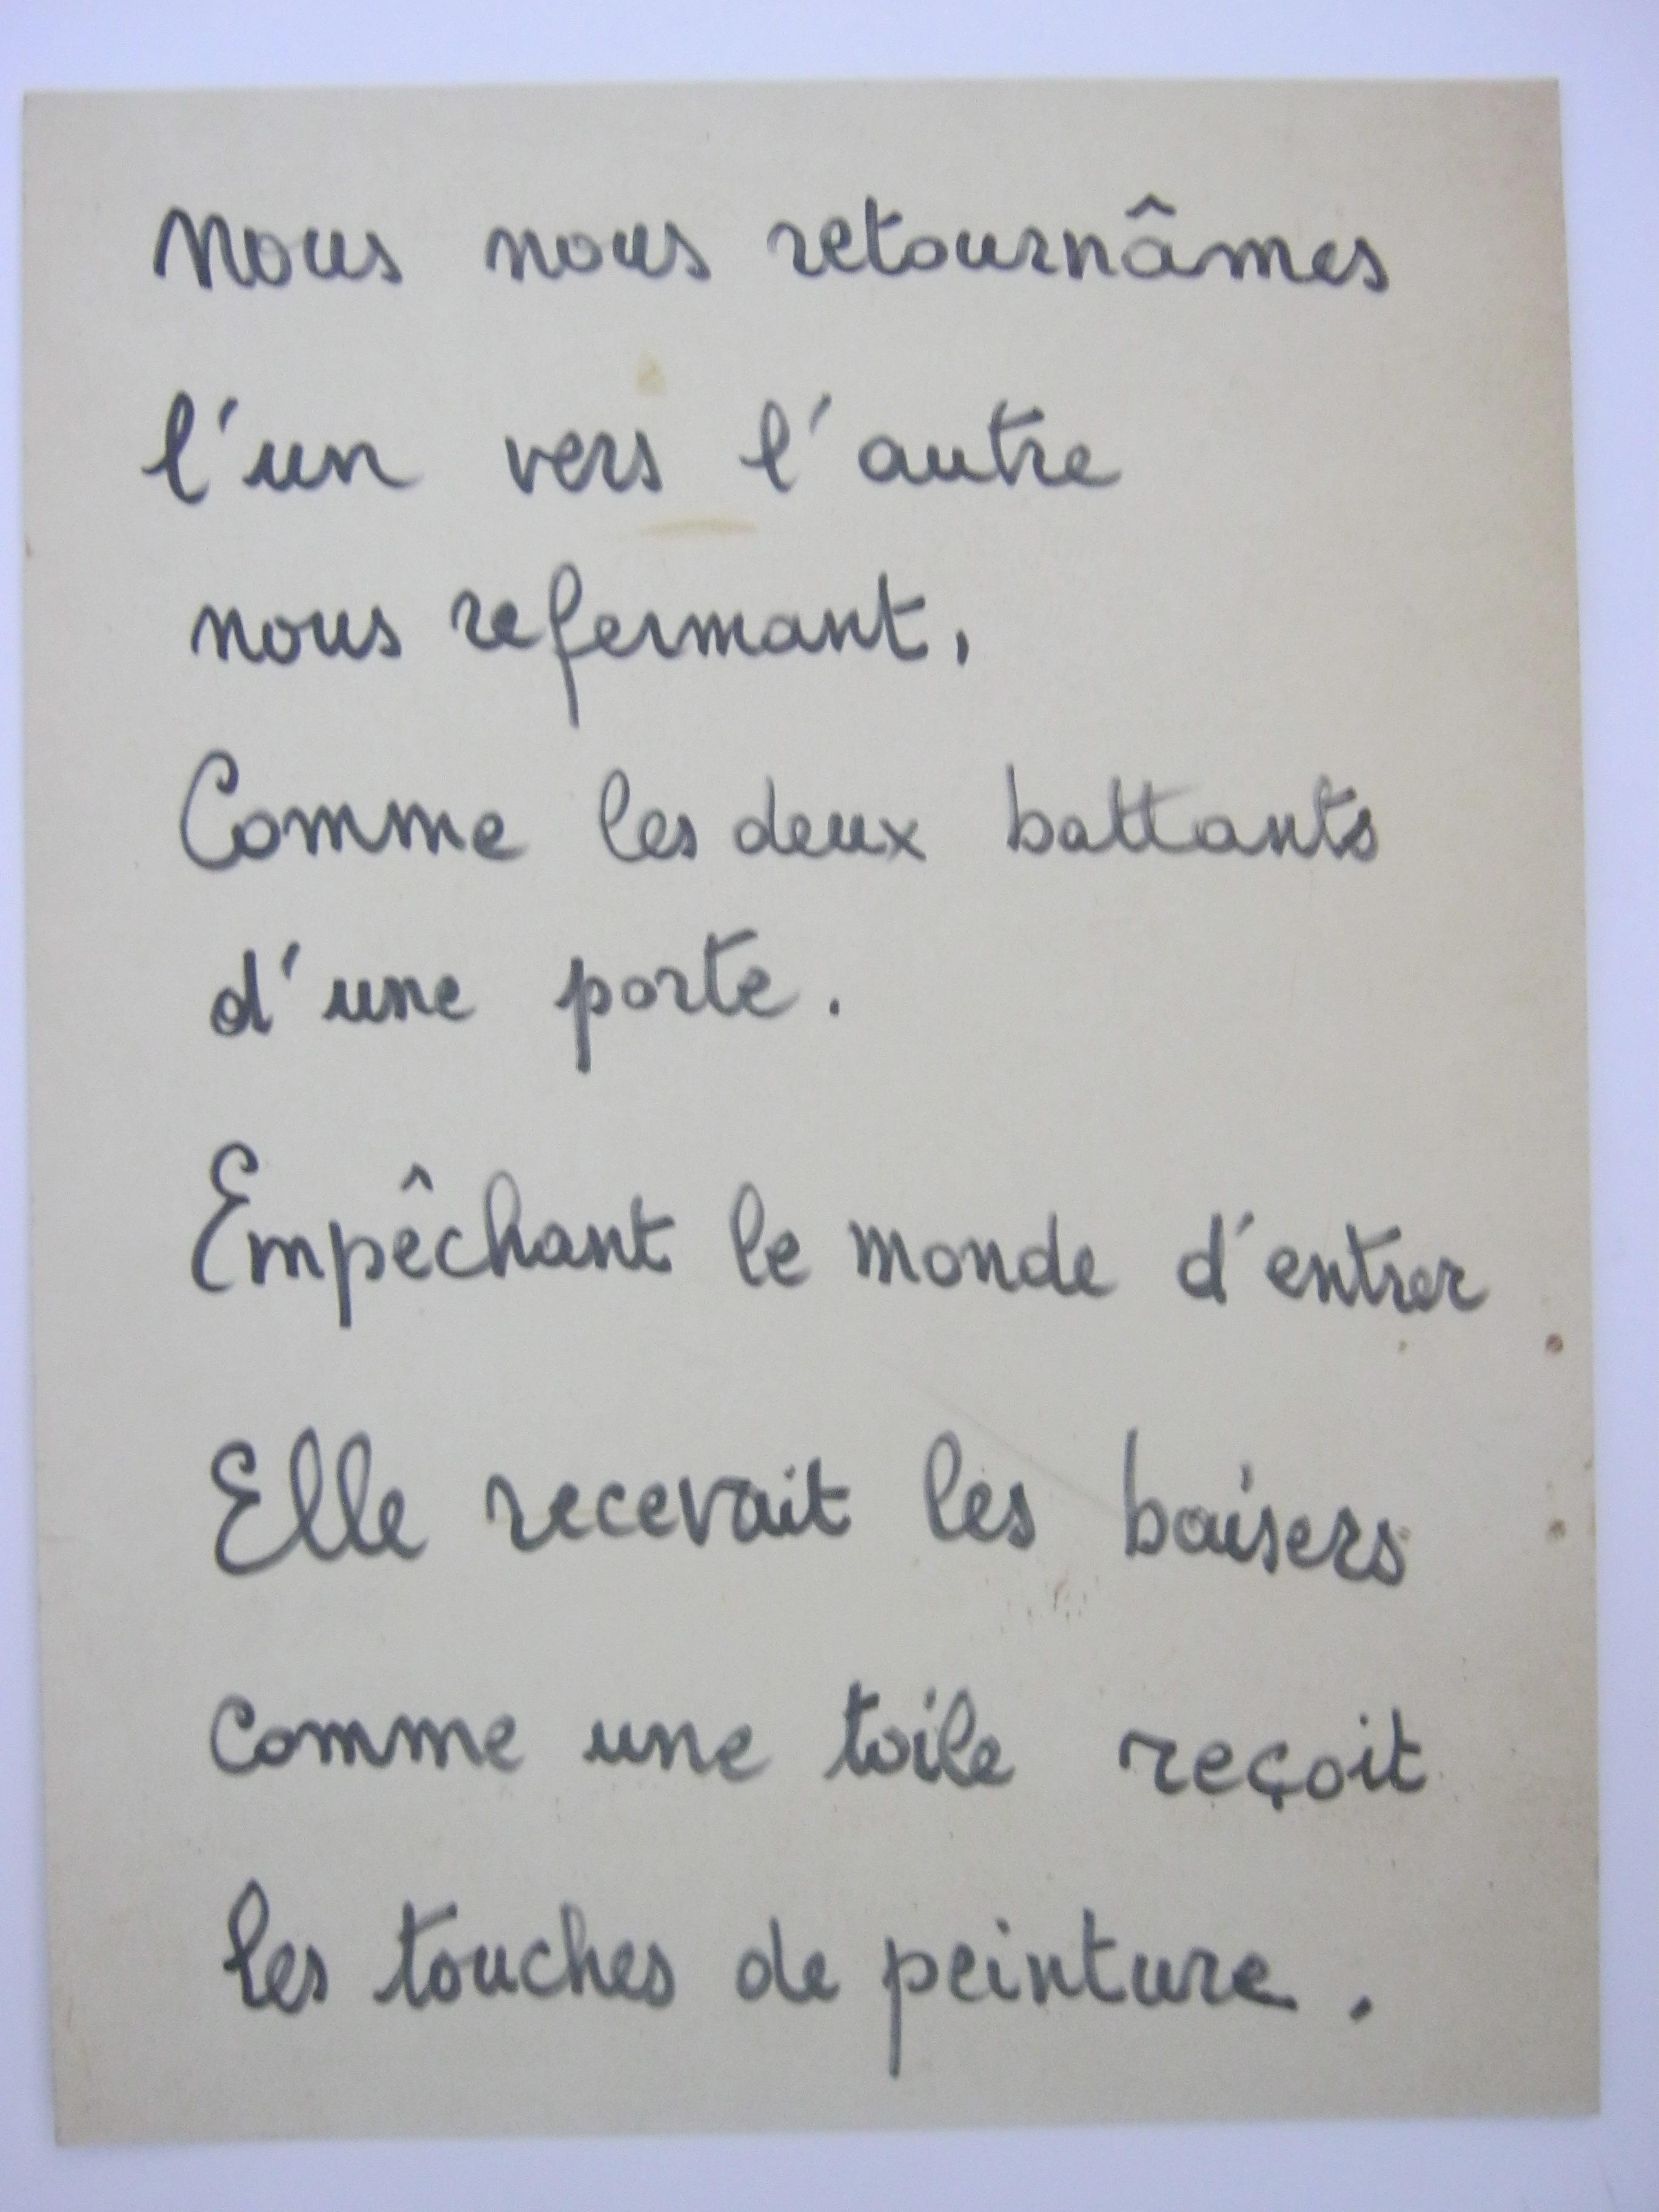 Nous nous retournâmes
l'un vers l'autre
nous refermant,
Comme les deux battants
d'une porte.
Empêchant le monde d'entrer
Elle recevait les baisers
comme une toile reçoit
les touches de peinture.